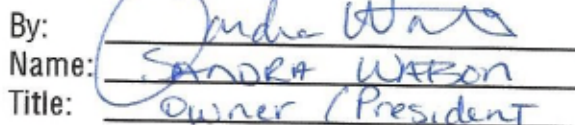 By: Sandra Watson
Name: SANDRA WATSON
Title: Owner / President